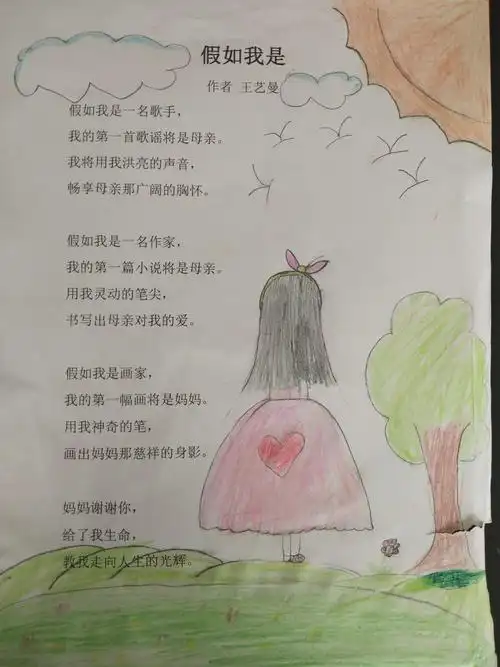 假如我是
作者 王艺曼
假如我是一名歌手，
我的第一首歌谣将是母亲。
我将用我洪亮的声音，
畅享母亲那广阔的胸怀。
假如我是一名作家，
我的第一篇小说将是母亲。
用我灵动的笔尖，
书写出母亲对我的爱。
假如我是画家，
我的第一幅画将是妈妈。
用我神奇的笔，
画出妈妈那慈祥的身影。
妈妈谢谢你，
给了我生命，
教我走向人生的光辉。